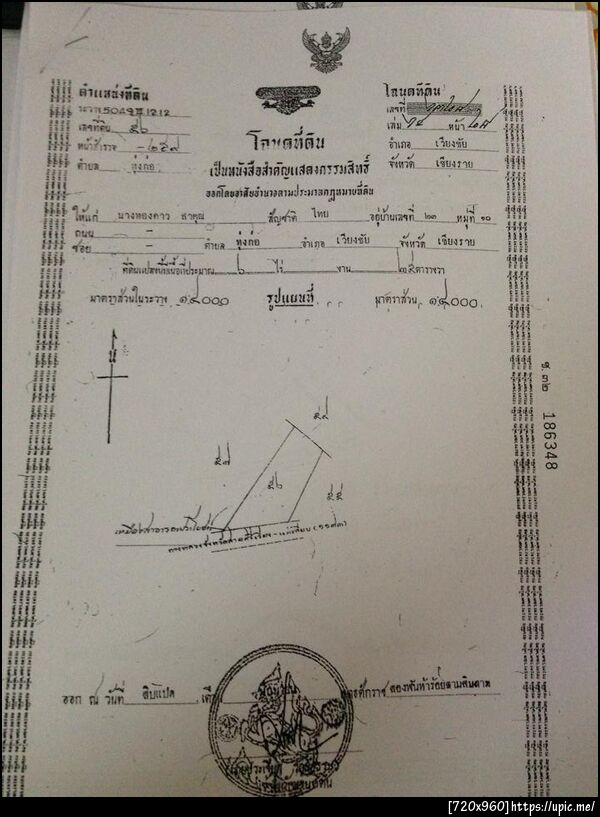 ตำแหน่งที่ดิน
ระวาง 5049 II 1212
เลขที่ดิน ๕๖
หน้าสำรวจ -๒๕๗
ตำบล ทุ่งก่อ
โฉนดที่ดิน
เลขที่
เล่ม หน้า
อำเภอ เวียงชัย
จังหวัด เชียงราย
โฉนดที่ดิน
เป็นหนังสือสำคัญแสดงกรรมสิทธิ์
ออกโดยอาศัยอำนาจตามประมวลกฎหมายที่ดิน
ให้แก่ นางทองคาว สัญชาติ ไทย อยู่บ้านเลขที่ ๒๓ หมู่ที่ ๑๐
ถนน -
ซอย - ตำบล ทุ่งก่อ อำเภอ เวียงชัย จังหวัด เชียงราย
ที่ดินแปลงนี้มีเนื้อที่ประมาณ ๖ ไร่ งาน ตารางวา
มาตราส่วนในระวาง ๑:๔๐๐๐ รูปแผนที่ มาตราส่วน ๑:๔๐๐๐
น
๕๙
๕๗
๕๖
๕๕
ฐ. ๓๒ 186348
ออก ณ วันที่ สิบแปด เดือน พุทธศักราช สองพันห้าร้อยสามสิบสาม
[720x960]https://upic.me/